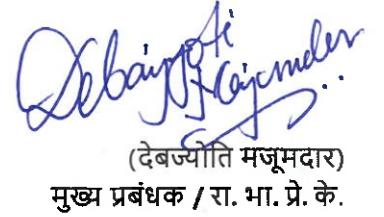 Debajyoti
Majumder
(देबज्योति मजूमदार)
मुख्य प्रबंधक / रा. भा. प्रे. के.